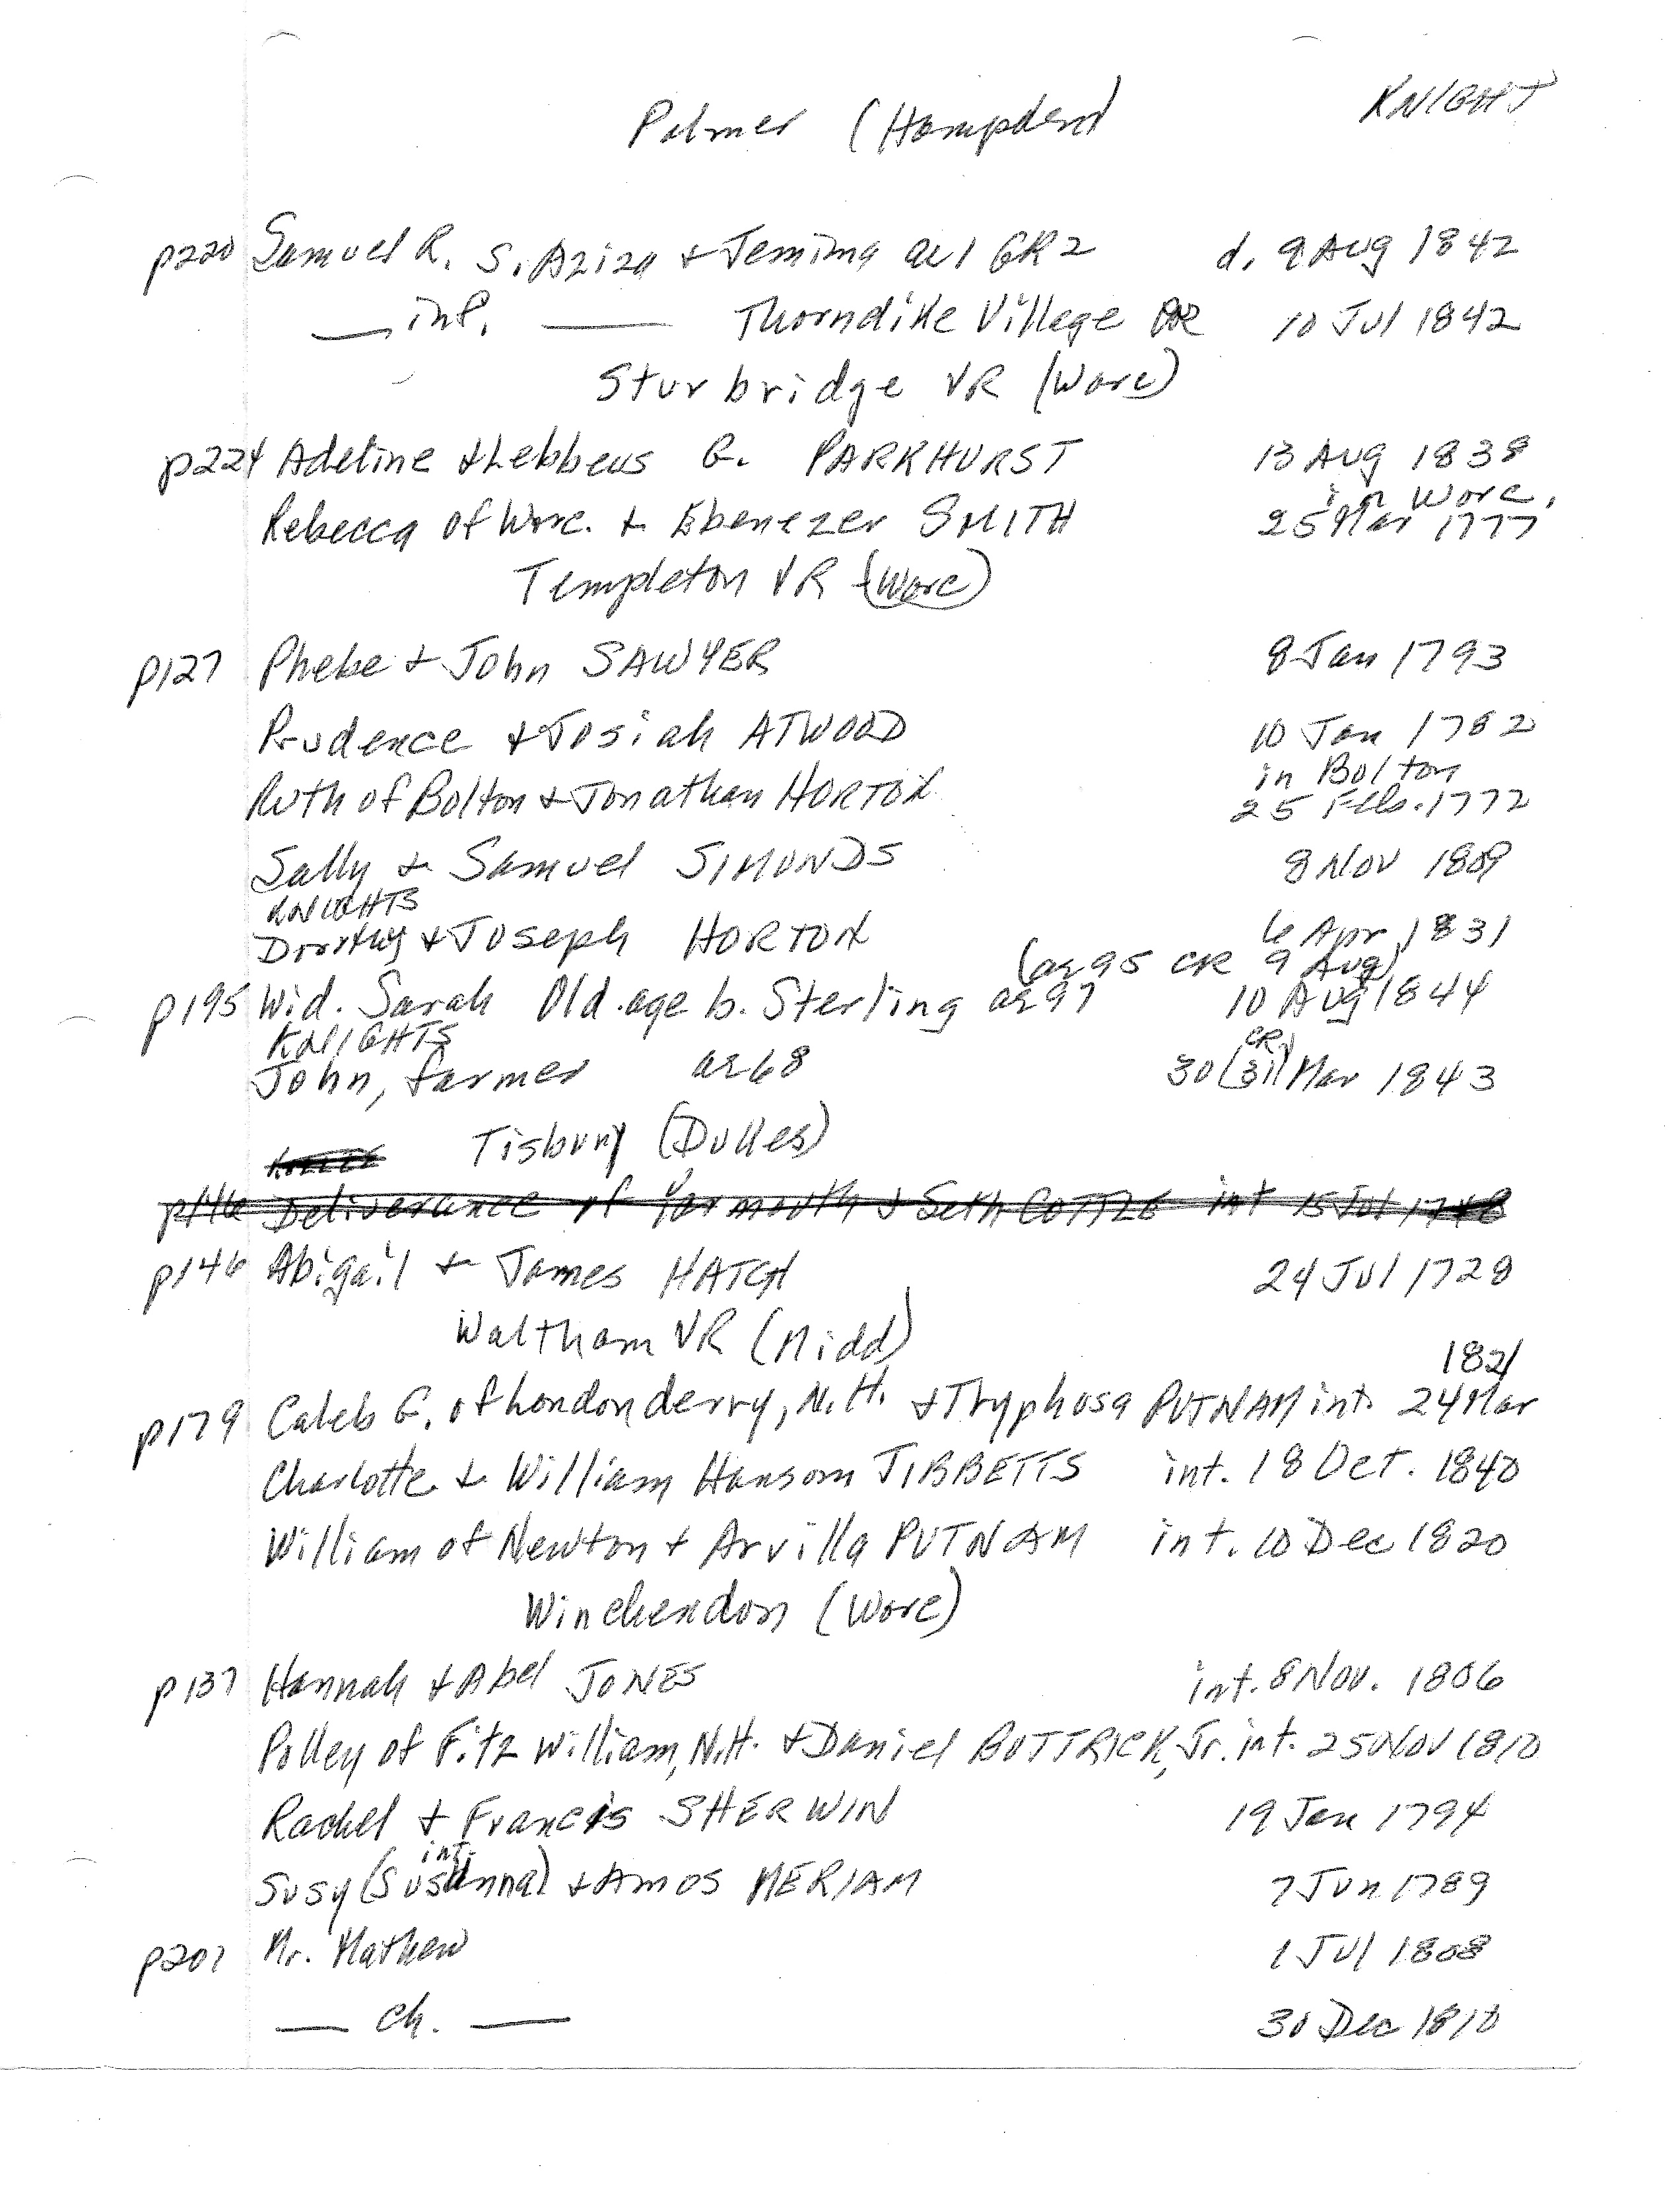 KNIGHT
Palmer (Hampden)
p220 Samuel R. S. Aziza & Jemima ae 1 GR2 d. 9 Aug 1842
— inf. — Thorndike Village 10 Jul 1842
Sturbridge VR (Worc)
p224 Adeline & Lebbeus G. PARKHURST 13 Aug 1838
in Worc.
Rebecca of Worc. & Ebenezer SMITH 25 Mar 1777
Templeton VR (Worc)
p127 Phebe & John SAWYER 8 Jan 1793
Prudence & Josiah ATWOOD 10 Jan 1782
in Bolton
Ruth of Bolton & Jonathan HORTON 25 Feb. 1772
Sally & Samuel SIMONDS 8 Nov 1809
KNIGHTS
Dorothy & Joseph HORTON 6 Apr 1831
(ae 95 CR 9 Aug)
p195 Wid. Sarah Old age b. Sterling ae 97 10 Aug 1844
KNIGHTS CR
John, farmer ae 68 30 (31) Mar 1843
Tisbury (Dukes)
p146 Deliverance of Yarmouth & Seth COTTLE int 15 Jul 1748
p146 Abigail & James HATCH 24 Jul 1728
Waltham VR (Midd)
1821
p179 Caleb G. of Londonderry, N.H. & Tryphosa PUTNAM int. 24 Mar
Charlotte & William Hansom TIBBETTS int. 18 Oct. 1840
William of Newton & Arvilla PUTNAM int. 10 Dec 1820
Winchendon (Worc)
p137 Hannah & Abel JONES int. 8 Nov. 1806
Polley of Fitz william, N.H. & Daniel BUTTRICK, Jr. int. 25 Nov 1810
Rachel & Francis SHERWIN 19 Jan 1794
int.
Susy (Susanna) & Amos MERIAM 7 Jun 1789
p207 Mr. Mathew 1 Jul 1808
— ch. — 30 Dec 1810